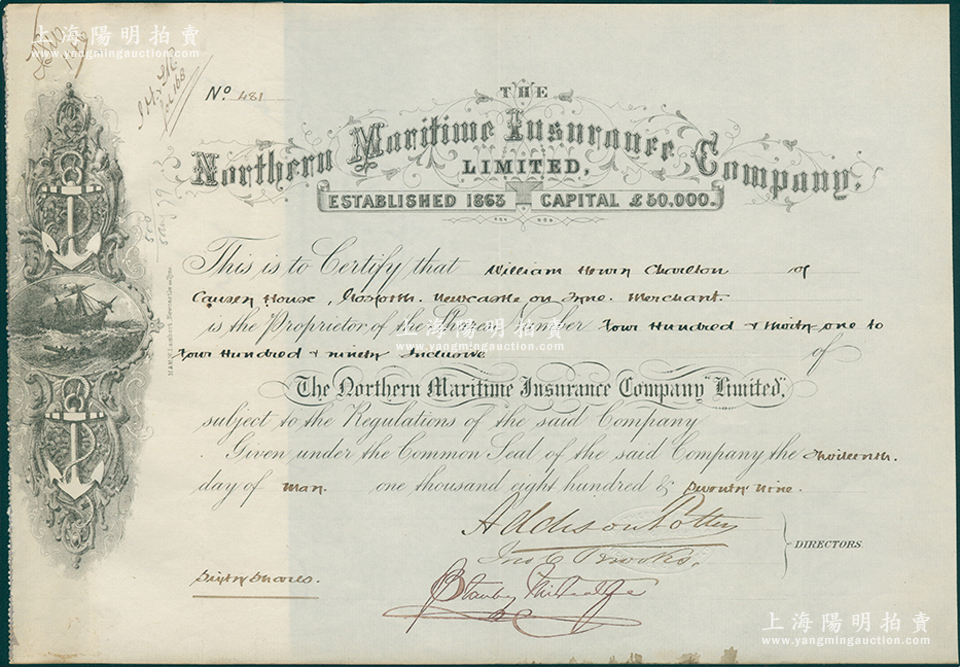 上海陽明拍賣
www.yangmingauction.com
No 481
THE
Northern Maritime Insurance Company.
LIMITED,
ESTABLISHED 1863 CAPITAL £50,000.
This is to Certify that William Henry Charlton of
Causey House, Gosforth. Newcastle on Tyne. Merchant.
is the Proprietor of the Shares Number Four Hundred & thirty one to
Four Hundred & ninety Inclusive of
The Northern Maritime Insurance Company "Limited",
subject to the Regulations of the said Company
Given under the Common Seal of the said Company the thirteenth.
day of May. one thousand eight hundred & Seventy Nine.
Addison Potter
Jno C Brooks.
DIRECTORS.
Sixty Shares.
Stanley
上海陽明拍賣
www.yangmingauction.com
上海陽明拍賣
www.yangmingauction.com